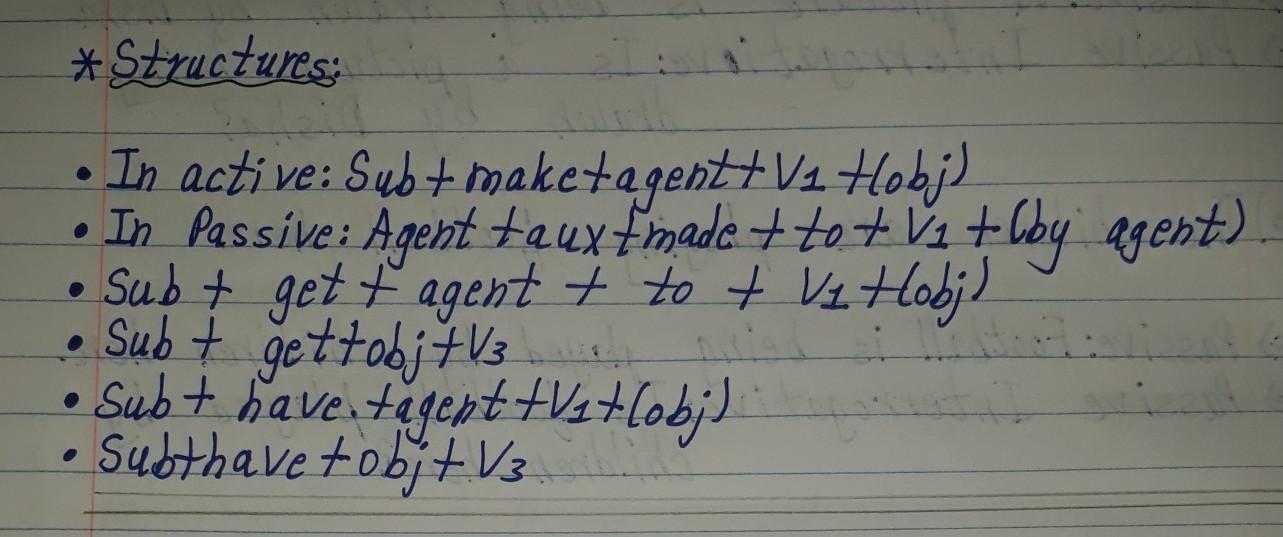 * Structures:
• In active: Sub + make + agent + V1 + (obj)
• In Passive: Agent + aux + made + to + V1 + (by agent)
• Sub + get + agent + to + V1 + (obj)
• Sub + get + obj + V3
• Sub + have + agent + V1 + (obj)
• Sub + have + obj + V3